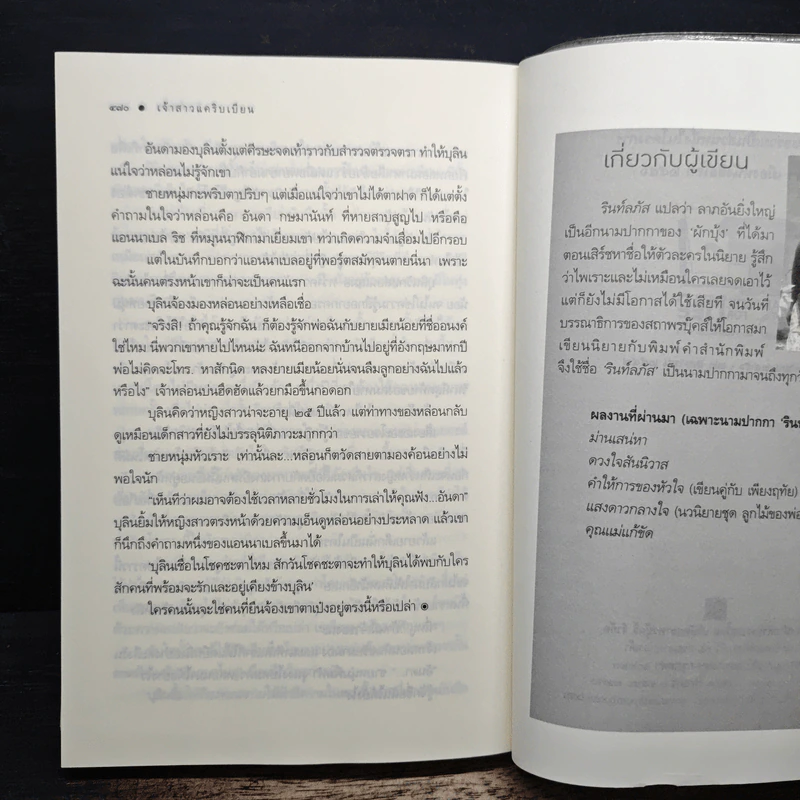 ๔๗๐ ● เจ้าสาวแคริบเบียน
อันดามองบุลินตั้งแต่ศีรษะจดเท้าราวกับสำรวจตรวจตรา ทำให้บุลิน
แน่ใจว่าหล่อนไม่รู้จักเขา
ชายหนุ่มกะพริบตาปริบๆ แต่เมื่อแน่ใจว่าเขาไม่ได้ตาฝาด ก็ได้แต่ตั้ง
คำถามในใจว่าหล่อนคือ อันดา กษมานันท์ ที่หายสาบสูญไป หรือคือ
แอนนาเบล ริช ที่หมุนนาฬิกามาเยี่ยมเขา ทว่าเกิดความจำเสื่อมไปอีกรอบ
แต่ในบันทึกบอกว่าแอนนาเบลอยู่ที่พอร์ตสมัทจนตายนี่นา เพราะ
ฉะนั้นคนตรงหน้าเขาก็น่าจะเป็นคนแรก
บุลินจ้องมองหล่อนอย่างเหลือเชื่อ
“จริงสิ! ถ้าคุณรู้จักฉัน ก็ต้องรู้จักพ่อฉันกับยายเมียน้อยที่ชื่ออนงค์
ใช่ไหม นี่พวกเขาหายไปไหนน่ะ ฉันหนีออกจากบ้านไปอยู่ที่อังกฤษมาหกปี
พ่อไม่คิดจะโทร. หาสักนิด หลงยายเมียน้อยนั่นจนลืมลูกอย่างฉันไปแล้ว
หรือไง” เจ้าหล่อนบ่นฮึดฮัดแล้วยกมือขึ้นกอดอก
บุลินคิดว่าหญิงสาวน่าจะอายุ ๒๕ ปีแล้ว แต่ท่าทางของหล่อนกลับ
ดูเหมือนเด็กสาวที่ยังไม่บรรลุนิติภาวะมากกว่า
ชายหนุ่มหัวเราะ เท่านั้นละ...หล่อนก็ตวัดสายตามองค้อนอย่างไม่
พอใจนัก
“เห็นทีว่าผมอาจต้องใช้เวลาหลายชั่วโมงในการเล่าให้คุณฟัง...อันดา”
บุลินยิ้มให้หญิงสาวตรงหน้าด้วยความเอ็นดูหล่อนอย่างประหลาด แล้วเขา
ก็นึกถึงคำถามหนึ่งของแอนนาเบลขึ้นมาได้
‘บุลินเชื่อในโชคชะตาไหม สักวันโชคชะตาจะทำให้บุลินได้พบกับใคร
สักคนที่พร้อมจะรักและอยู่เคียงข้างบุลิน’
ใครคนนั้นจะใช่คนที่ยืนจ้องเขาตาเป๋งอยู่ตรงนี้หรือเปล่า
เกี่ยวกับผู้เขียน
รินท์ลภัส แปลว่า ลาภอันยิ่งใหญ่
เป็นอีกนามปากกาของ ‘ผักบุ้ง’ ที่ได้มา
ตอนเสิร์ชหาชื่อให้ตัวละครในนิยาย รู้สึก
ว่าไพเราะและไม่เหมือนใครเลยจดเอาไว้
แต่ก็ยังไม่มีโอกาสได้ใช้เสียที จนวันที่
บรรณาธิการของสถาพรบุ๊คส์ให้โอกาสมา
เขียนนิยายกับพิมพ์คำสำนักพิมพ์
จึงใช้ชื่อ ‘รินท์ลภัส’ เป็นนามปากกามาจนถึงทุก
ผลงานที่ผ่านมา (เฉพาะนามปากกา ‘รินท
ม่านเสน่หา
ดวงใจสันนิวาส
คำให้การของหัวใจ (เขียนคู่กับ เพียงฤทัย)
แสงดาวกลางใจ (นวนิยายชุด ลูกไม้ของพ่อ
คุณแม่แก้ขัด